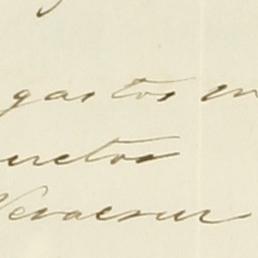 gastos en
uretos
Veracruz